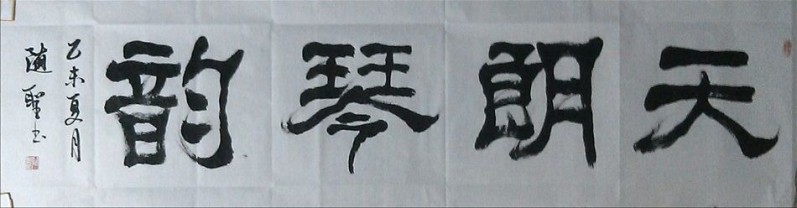 天朗琴韵
乙未夏月
随聖书